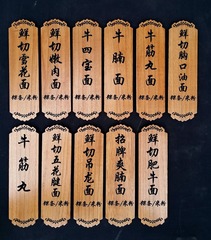 鲜切雪花面
粿条/米粉
鲜切嫩肉面
粿条/米粉
牛四宝面
粿条/米粉
牛腩面
粿条/米粉
牛筋丸面
粿条/米粉
鲜切胸口油面
粿条/米粉
牛筋丸
鲜切五花腱面
粿条/米粉
鲜切吊龙面
粿条/米粉
招牌爽腩面
粿条/米粉
鲜切肥牛面
粿条/米粉